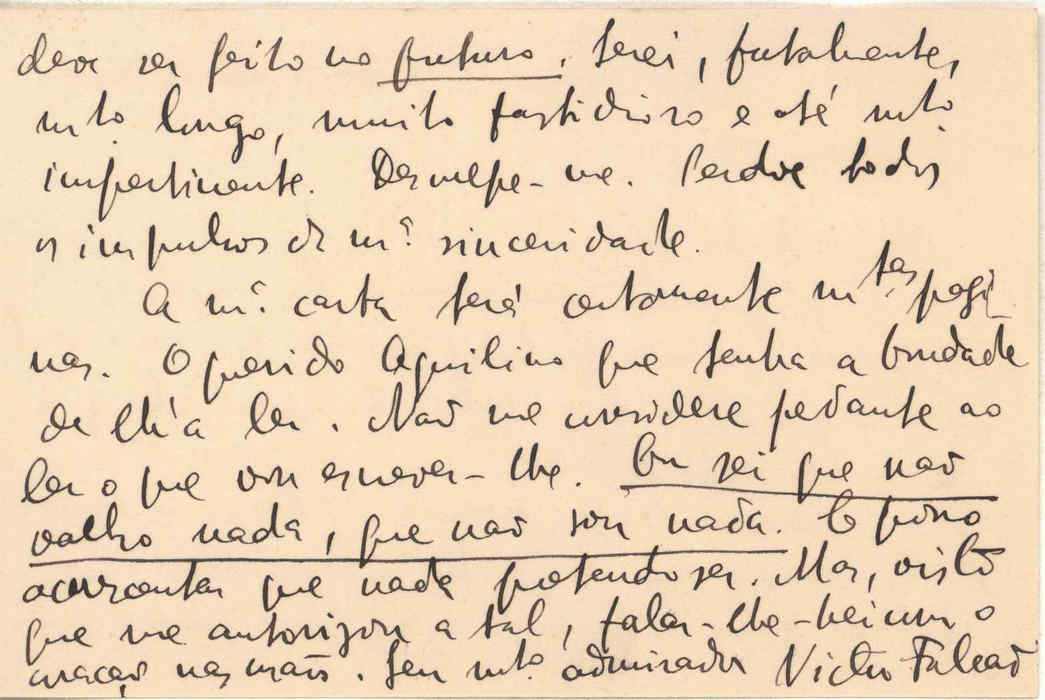 deve ser feito no futuro. Serei, fatalmente,
mto longo, muito fastidioso e até mto
impertinente. Desculpe-me. Perdoe todos
os impulsos de mª sinceridade.
A mª carta terá certamente mtas pági-
nas. O querido Aquilino que tenha a bondade
de lh'a ler. Não me considere pedante ao
ler o que vou escrever-lhe. Eu sei que não
valho nada, que não sou nada. E posso
acrescentar que nada pretendo ser. Mas, visto
que me autorizou a tal, falar-lhe-hei com o
coração nas mãos. Seu mto admirador Victor Falcão